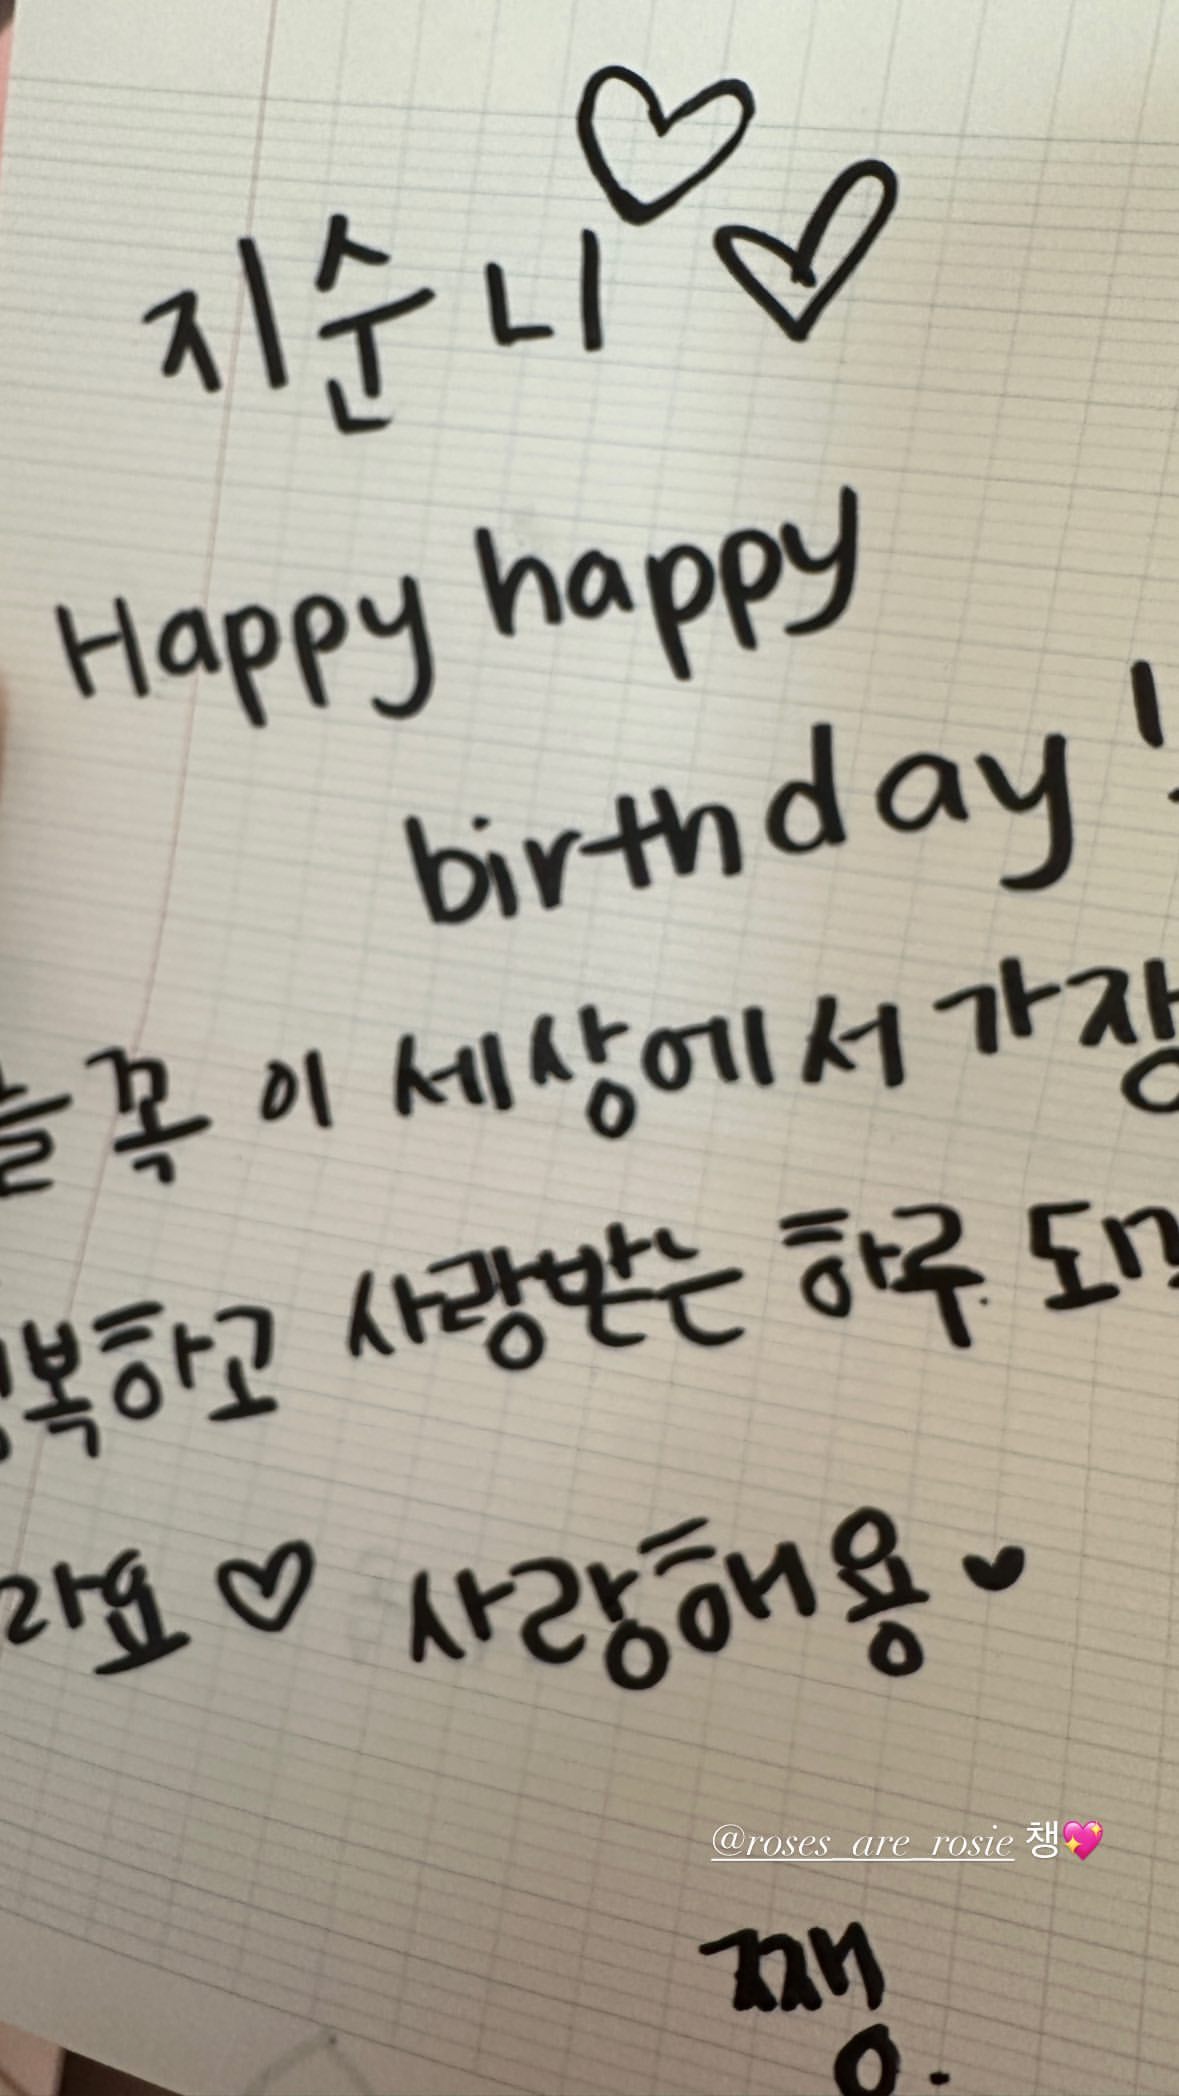 지순니
Happy happy
birthday!
늘 꼭 이 세상에서 가장
복하고 사랑받는 하루
라요 ♡ 사랑해용
@roses_are_rosie 챙💖
쨍.